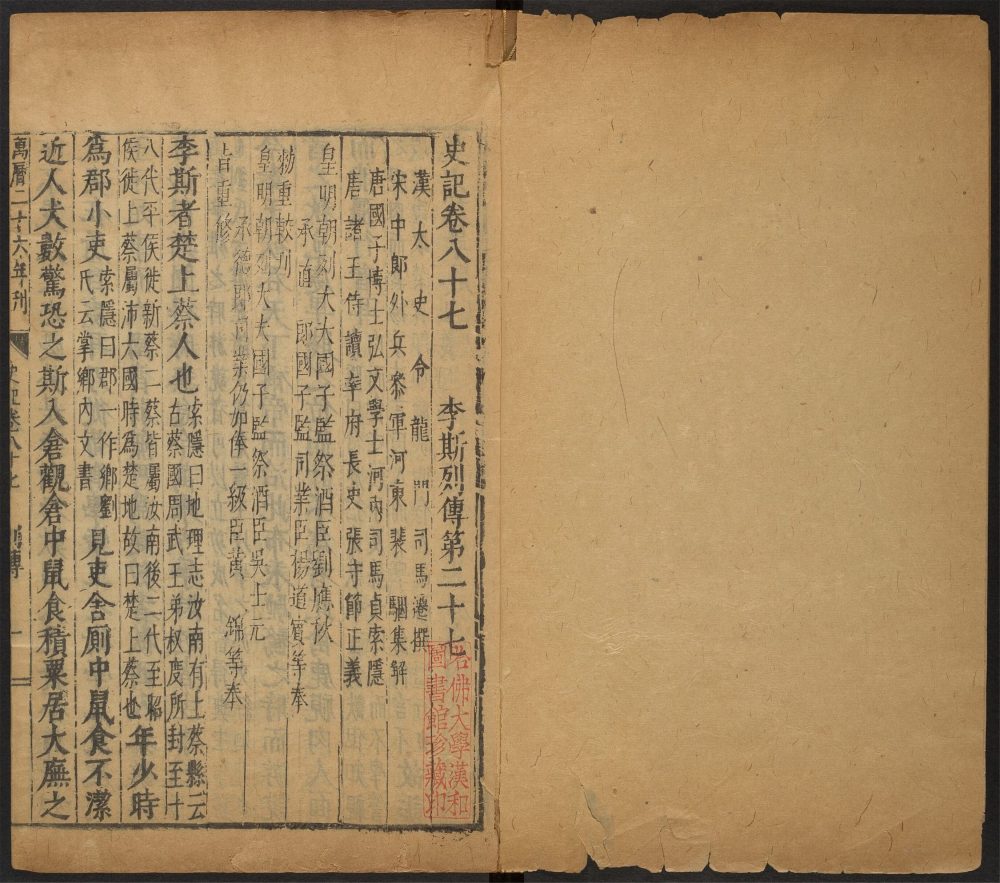 史記卷八十七　李斯列傳第二十七
漢太史令龍門司馬遷撰
宋中郎外兵參軍河東裴駰集解
唐國子博士弘文學士河內司馬貞索隱
唐諸王侍讀率府長史張守節正義
皇明朝列大夫國子監祭酒臣劉應秋
承直郎國子監司業臣楊道賓等奉
勑重較刊
皇明朝列大夫國子監祭酒臣吳士元
承德郎司業仍加俸一級臣黃錦等奉
旨重修
李斯者楚上蔡人也
索隱曰地理志汝南有上蔡縣云
古蔡國周武王弟叔度所封至十
八代平侯徙新蔡二蔡皆屬汝南後二代至昭
侯徙上蔡屬沛六國時爲楚地故曰楚上蔡也
年少時
爲郡小吏
索隱曰郡一作鄉劉
氏云掌鄉內文書
見吏舍厠中鼠食不潔
近人犬數驚恐之斯入倉觀倉中鼠食積粟居大廡之
萬曆二十六年刊
史記卷八十七
列傳
一
哈佛大學漢和
圖書館珍藏印